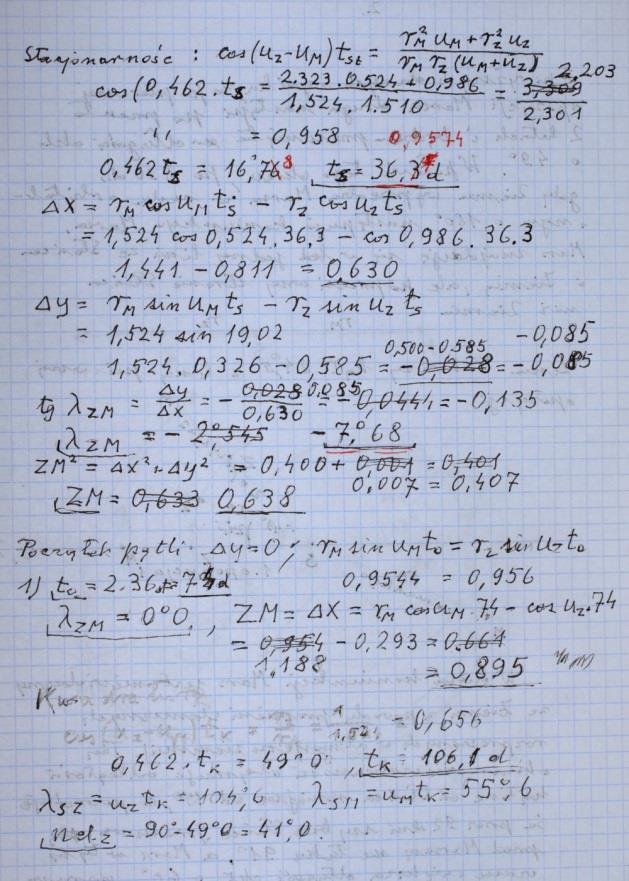 Stacjonarność : cos(u_Z - u_M) t_st = (r_M² u_M + r_Z² u_Z) / (r_M r_Z (u_M + u_Z))
cos(0,462 . t_s = (2.323. 0.524 + 0,986) / (1,524. 1.510) = 3,309 2,203 / 2,301
" = 0,958 0,9574
0,462 t_s = 16°,76 8 t_s = 36,3 d
Δx = r_M cos u_M t_s - r_Z cos u_Z t_s
= 1,524 cos 0,524. 36.3 - cos 0,986. 36.3
1,441 - 0,811 = 0,630
Δy = r_M sin u_M t_s - r_Z sin u_Z t_s
= 1,524 sin 19,02 -0,085
0,500 - 0.585
1,524. 0,326 - 0,585 = -0,028 = -0,085
tg λ_ZM = Δy/Δx = - 0,028 0,085 / 0,630 = -0,0444 = -0,135
λ_ZM = - 2°545 -7°,68
ZM² = Δx² + Δy² = 0,400 + 0,001 = 0,401
0,007 = 0,407
ZM = 0,633 0,638
Początek pętli Δy = 0; r_M sin u_M t_o = r_Z sin u_Z t_o
1) t_o = 2.36 = 74 d 0,9544 = 0,956
λ_ZM = 0°0, ZM = Δx = r_M cos u_M. 74 - cos u_Z. 74
= 0,954 - 0,293 = 0.661
1.188 = 0,895
1 / 1,524 = 0,656
0,462. t_k = 49°0, t_k = 106,1 d
λ_SZ = u_Z t_k = 104°,6 λ_SM = u_M t_k = 55°,6
= 90° - 49°0 = 41°,0